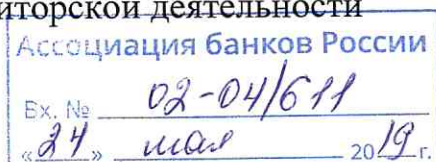 иторской деятельности
Ассоциация банков России
Вх. № 02-04/611
«24» мая 2019 г.